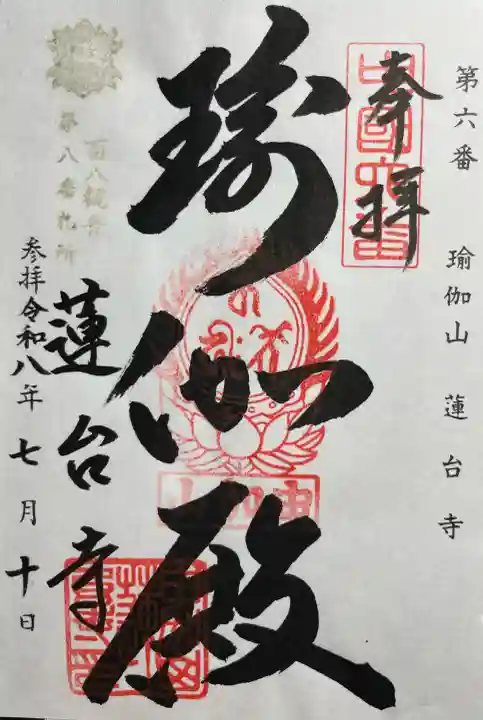 第六番 瑜伽山 蓮台寺
奉拝
瑜伽殿
百八観音
第八番札所
蓮台寺
参拝令和八年七月十日